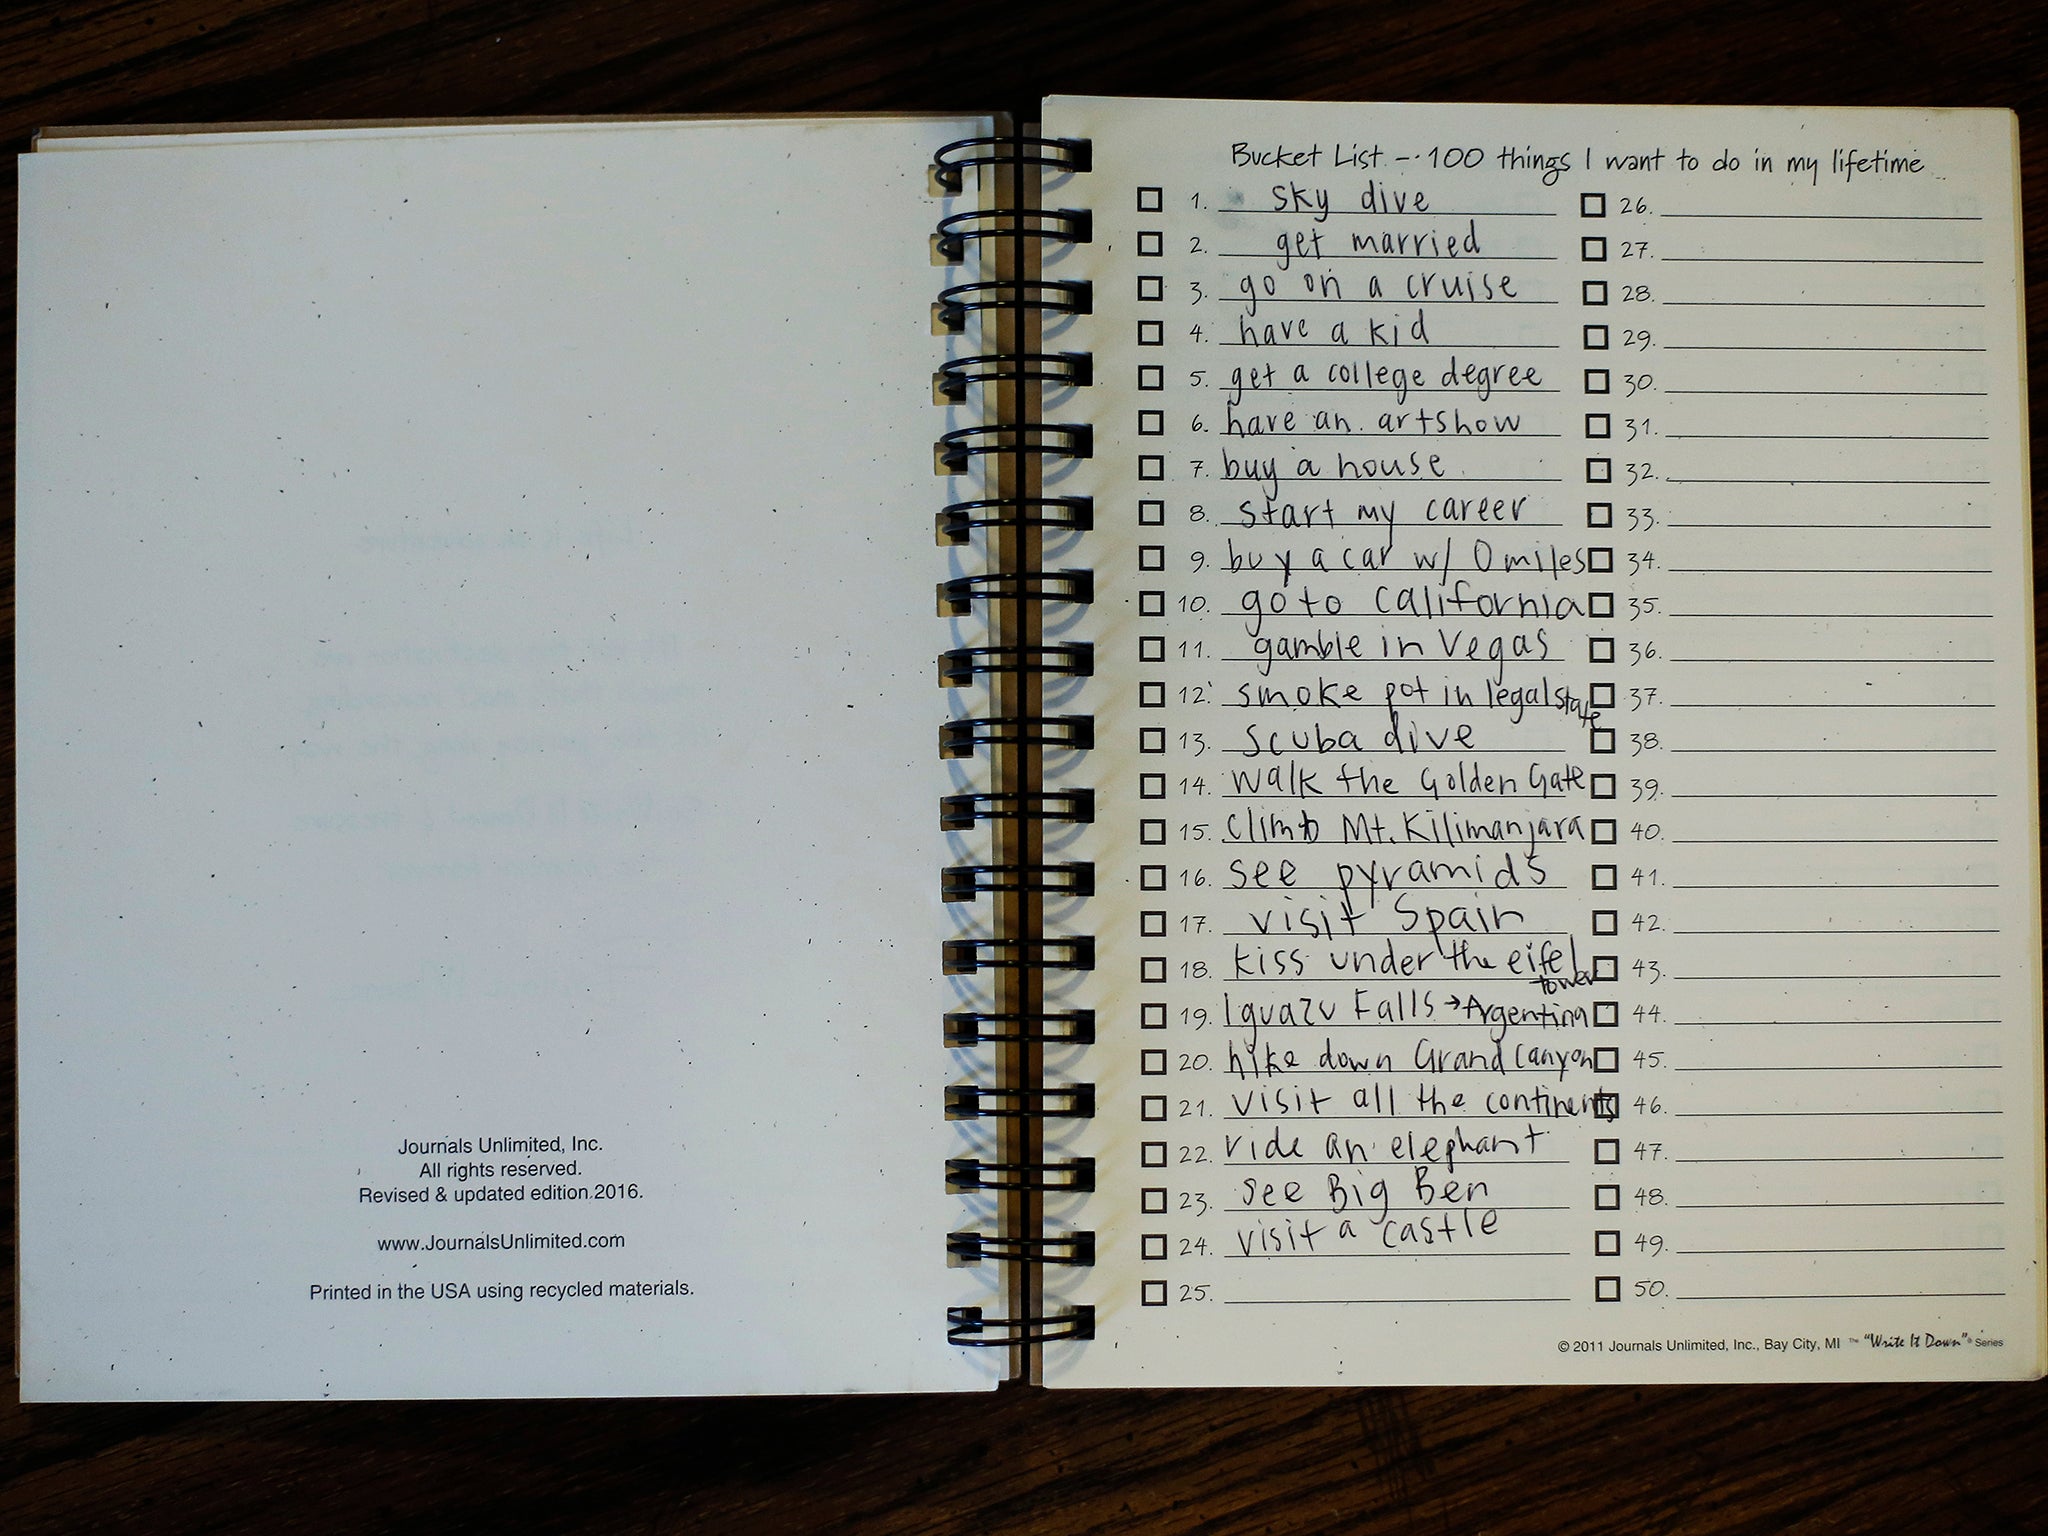 Journals Unlimited, Inc.
All rights reserved.
Revised & updated edition 2016.
www.JournalsUnlimited.com
Printed in the USA using recycled materials.
Bucket List - 100 things I want to do in my lifetime
1. sky dive
2. get married
3. go on a cruise
4. have a kid
5. get a college degree
6. have an artshow
7. buy a house
8. start my career
9. buy a car w/ 0 miles
10. go to California
11. gamble in Vegas
12. smoke pot in legal state
13. scuba dive
14. walk the Golden Gate
15. climb Mt. Kilimanjara
16. see pyramids
17. visit Spain
18. kiss under the eifel tower
19. Iguazu Falls → Argentina
20. hike down Grand Canyon
21. visit all the continents
22. ride an elephant
23. see Big Ben
24. visit a castle
25.
26.
27.
28.
29.
30.
31.
32.
33.
34.
35.
36.
37.
38.
39.
40.
41.
42.
43.
44.
45.
46.
47.
48.
49.
50.
© 2011 Journals Unlimited, Inc., Bay City, MI ™ "Write It Down"® Series